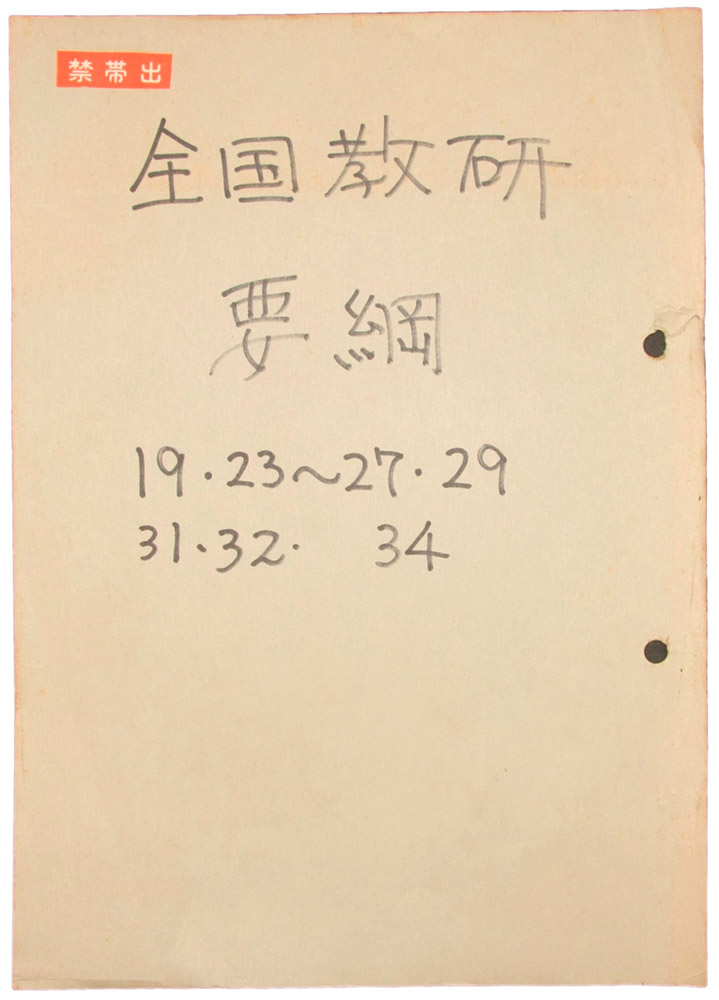 禁帯出
全国教研
要綱
19・23～27・29
31・32・ 34